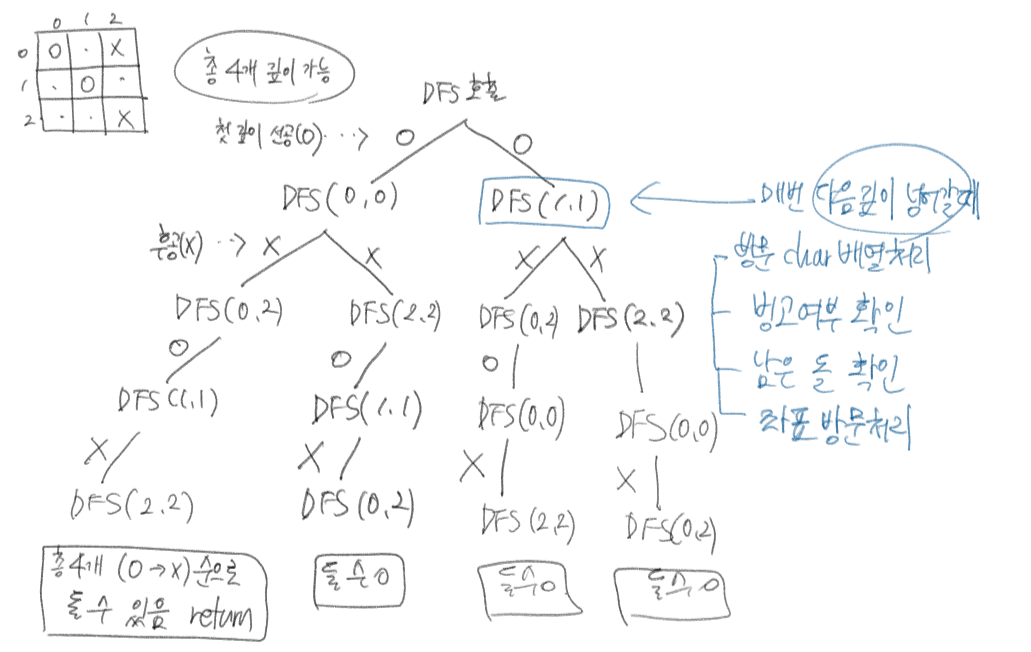 0 1 2
0 O . X
1 . O .
2 . . X
총 4개 깊이 가능
DFS 호출
첫 깊이 선공(O) ···> O O
DFS(0,0) DFS(1,1) ← 매번 다음깊이 넘어갈때
후공(X) ··> X X X X
방문 char 배열처리
DFS(0,2) DFS(2,2) DFS(0,2) DFS(2,2)
빙고여부 확인
O O O
남은 돌 확인
DFS(1,1) DFS(1,1) DFS(0,0) DFS(0,0)
좌표 방문처리
X X X X
DFS(2,2) DFS(0,2) DFS(2,2) DFS(0,2)
총 4개 (O→X)순으로
둘 수 있음 return
둘 수 O
둘 수 O
둘 수 O